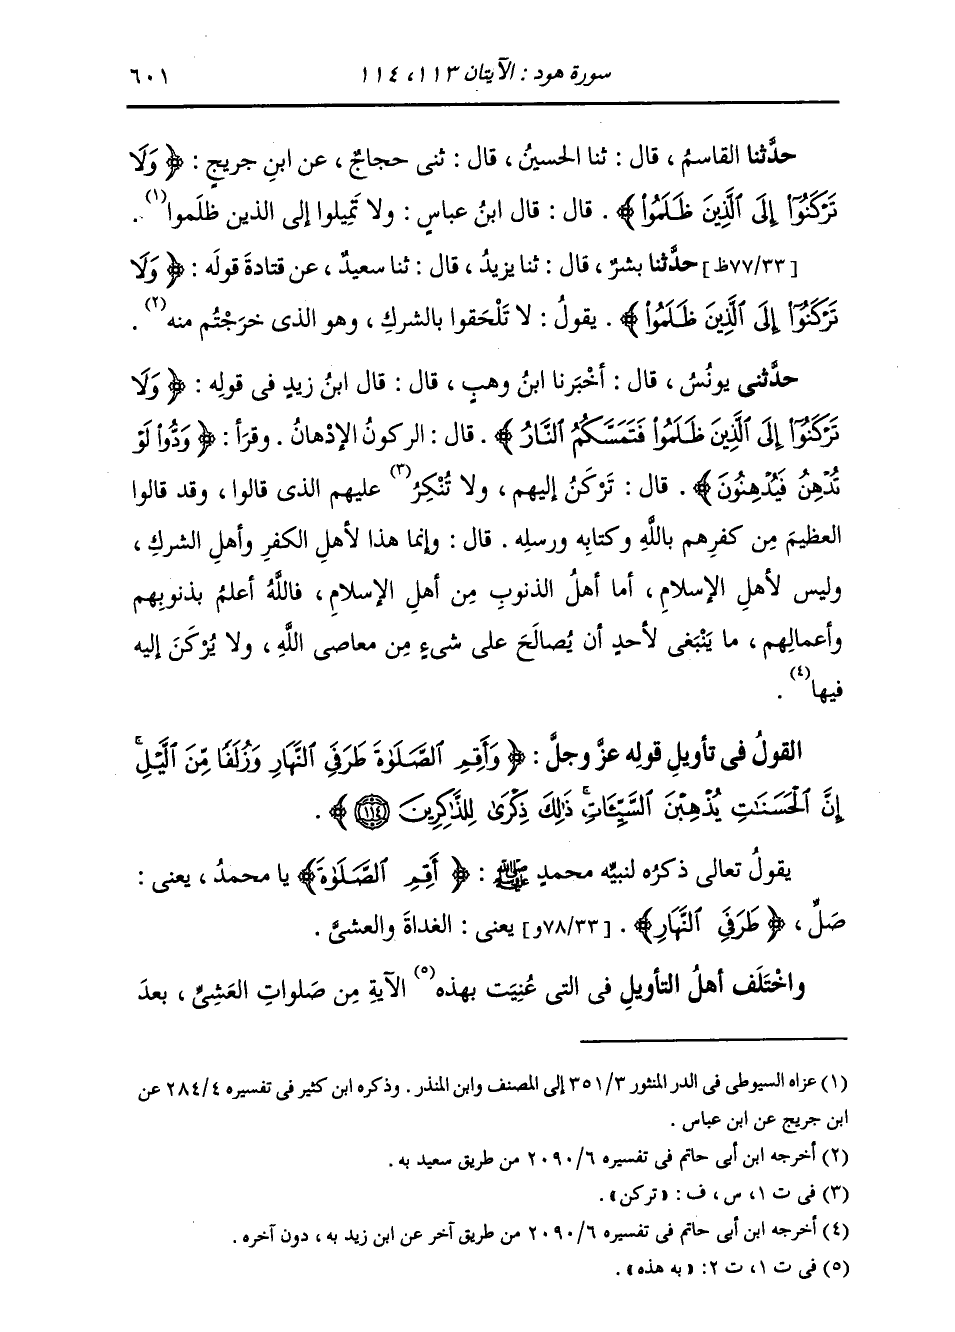 سورة هود : الآيتان ١١٣، ١١٤ ٦٠١
حدَّثنا القاسمُ ، قال : ثنا الحسينُ ، قال : ثنى حجاجٌ ، عن ابنِ جريجٍ : ﴿ وَلَا
تَرْكَنُوٓا۟ إِلَى ٱلَّذِينَ ظَلَمُوا۟ ﴾ . قال : قال ابنُ عباسٍ : ولا تَمِيلوا إلى الذين ظلَموا(١) .
[٧٧/٣٣ظ] حدَّثنا بشرٌ ، قال : ثنا يزيدُ ، قال : ثنا سعيدٌ ، عن قتادةَ قولَه : ﴿ وَلَا
تَرْكَنُوٓا۟ إِلَى ٱلَّذِينَ ظَلَمُوا۟ ﴾ . يقولُ : لا تَلْحَقوا بالشركِ ، وهو الذى خرَجْتُم منه(٢) .
حدَّثنى يونُسُ ، قال : أخْبَرنا ابنُ وهبٍ ، قال : قال ابنُ زيدٍ فى قولِه : ﴿ وَلَا
تَرْكَنُوٓا۟ إِلَى ٱلَّذِينَ ظَلَمُوا۟ فَتَمَسَّكُمُ ٱلنَّارُ ﴾ . قال : الركونُ الإدْهانُ . وقرَأ : ﴿ وَدُّوا۟ لَوْ
تُدْهِنُ فَيُدْهِنُونَ ﴾ . قال : تَرْكَنُ إليهم ، ولا تُنْكِرُ(٣) عليهم الذى قالوا ، وقد قالوا
العظيمَ مِن كفرِهم باللَّهِ وكتابِه ورسلِه . قال : وإنما هذا لأهلِ الكفرِ وأهلِ الشركِ ،
وليس لأهلِ الإسلامِ ، أما أهلُ الذنوبِ مِن أهلِ الإسلامِ ، فاللَّهُ أعلمُ بذنوبِهم
وأعمالِهم ، ما يَنْبَغى لأحدٍ أن يُصالَحَ على شىءٍ مِن معاصى اللَّهِ ، ولا يُرْكَنَ إليه
فيها(٤) .
القولُ فى تأويلِ قولِه عزَّ وجلَّ : ﴿ وَأَقِمِ ٱلصَّلَوٰةَ طَرَفَىِ ٱلنَّهَارِ وَزُلَفًا مِّنَ ٱلَّيْلِ ۚ
إِنَّ ٱلْحَسَنَٰتِ يُذْهِبْنَ ٱلسَّيِّـَٔاتِ ۚ ذَٰلِكَ ذِكْرَىٰ لِلذَّٰكِرِينَ ١١٤ ﴾ .
يقولُ تعالى ذكرُه لنبيِّه محمدٍ ﷺ : ﴿ أَقِمِ ٱلصَّلَوٰةَ ﴾ يا محمدُ ، يعنى :
صَلِّ ، ﴿ طَرَفَىِ ٱلنَّهَارِ ﴾ . [٧٨/٣٣و] يعنى : الغداةَ والعشىَّ .
واخْتَلَف أهلُ التأويلِ فى التى عُنِيَت بهذه(٥) الآيةِ مِن صَلواتِ العَشِىِّ ، بعدَ
(١) عزاه السيوطى فى الدر المنثور ٣٥١/٣ إلى المصنف وابن المنذر . وذكره ابن كثير فى تفسيره ٢٨٤/٤ عن
ابن جريج عن ابن عباس .
(٢) أخرجه ابن أبى حاتم فى تفسيره ٢٠٩٠/٦ من طريق سعيد به .
(٣) فى ت ١، س ، ف : «تركن» .
(٤) أخرجه ابن أبى حاتم فى تفسيره ٢٠٩٠/٦ من طريق آخر عن ابن زيد به ، دون آخره .
(٥) فى ت ١، ت ٢: «به هذه» .